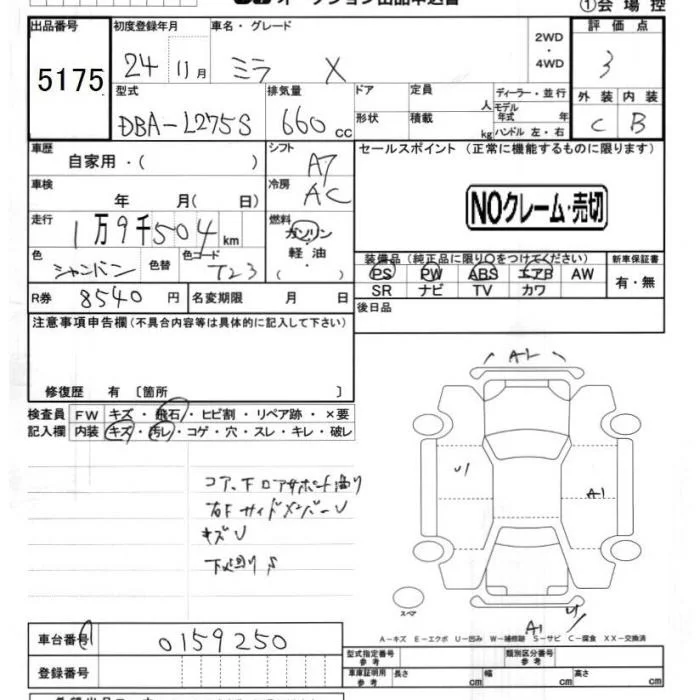 ①会場控
出品番号 初度登録年月 車名・グレード 評価点
5175 24 11月 ミラ X 2WD・4WD 3
型式 排気量 ドア 定員 人 ディーラー・並行 外装 内装
モデル年式 年
DBA-L275S 660cc 形状 積載 kg ハンドル 左・右 C B
車歴 シフト セールスポイント (正常に機能するものに限ります)
自家用・( ) AT
車検 冷房 NOクレーム・売切
年 月( 日) AC
走行 燃料
1万9千504km ガソリン・軽油・( )
色 色替 色コード 装備品 (純正品に限り○をつけてください) 新車保証書
シャンパン T23 PS PW ABS エアB AW 有・無
SR ナビ TV カワ
R券 8540円 名変期限 月 日 後日品
注意事項申告欄(不具合内容等は具体的に記入して下さい)
修復歴 有 〔箇所 〕
検査員 FW キズ・飛石・ヒビ割・リペア跡・×要
記入欄 内装 キズ・汚レ・コゲ・穴・スレ・キレ・破レ
コア、下ロアサポート曲り
右FサイドメンバーU
キズU
下廻りS
A1
U1
A1
A1
U
スペア
A-キズ E-エクボ U-凹み W-補修跡 S-サビ C-腐食 XX-交換済
車台番号 0159250
型式指定番号 参考 類別区分番号 参考
登録番号 車庫証明用 参考 長さ cm 幅 cm 高さ cm